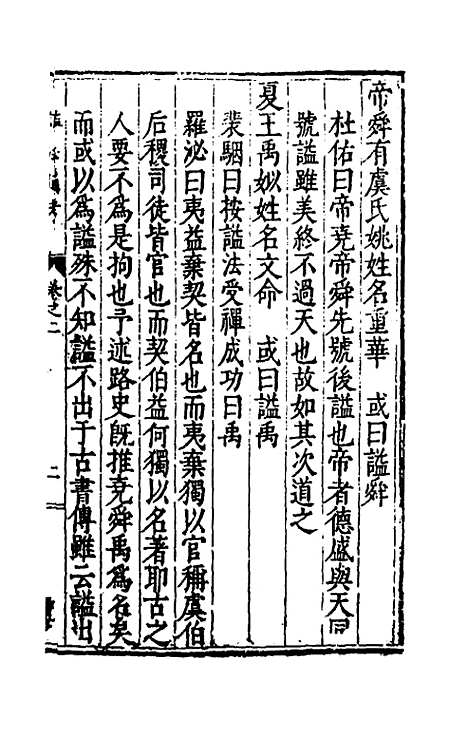 帝舜有虞氏姚姓名重華　或曰謚舜
杜佑曰帝堯帝舜先號後謚也帝者德盛與天同
號謚雖美終不過天也故如其次道之
夏王禹姒姓名文命　或曰謚禹
裴駰曰按謚法受禪成功曰禹
羅泌曰夷益棄契皆名也而夷棄獨以官稱虞伯
后稷司徒皆官也而契伯益何獨以名著耶古之
人要不為是拘也予述路史旣推堯舜禹為名矣
而或以為謚殊不知謚不出于古書傳雖云謚出
卷之二
二